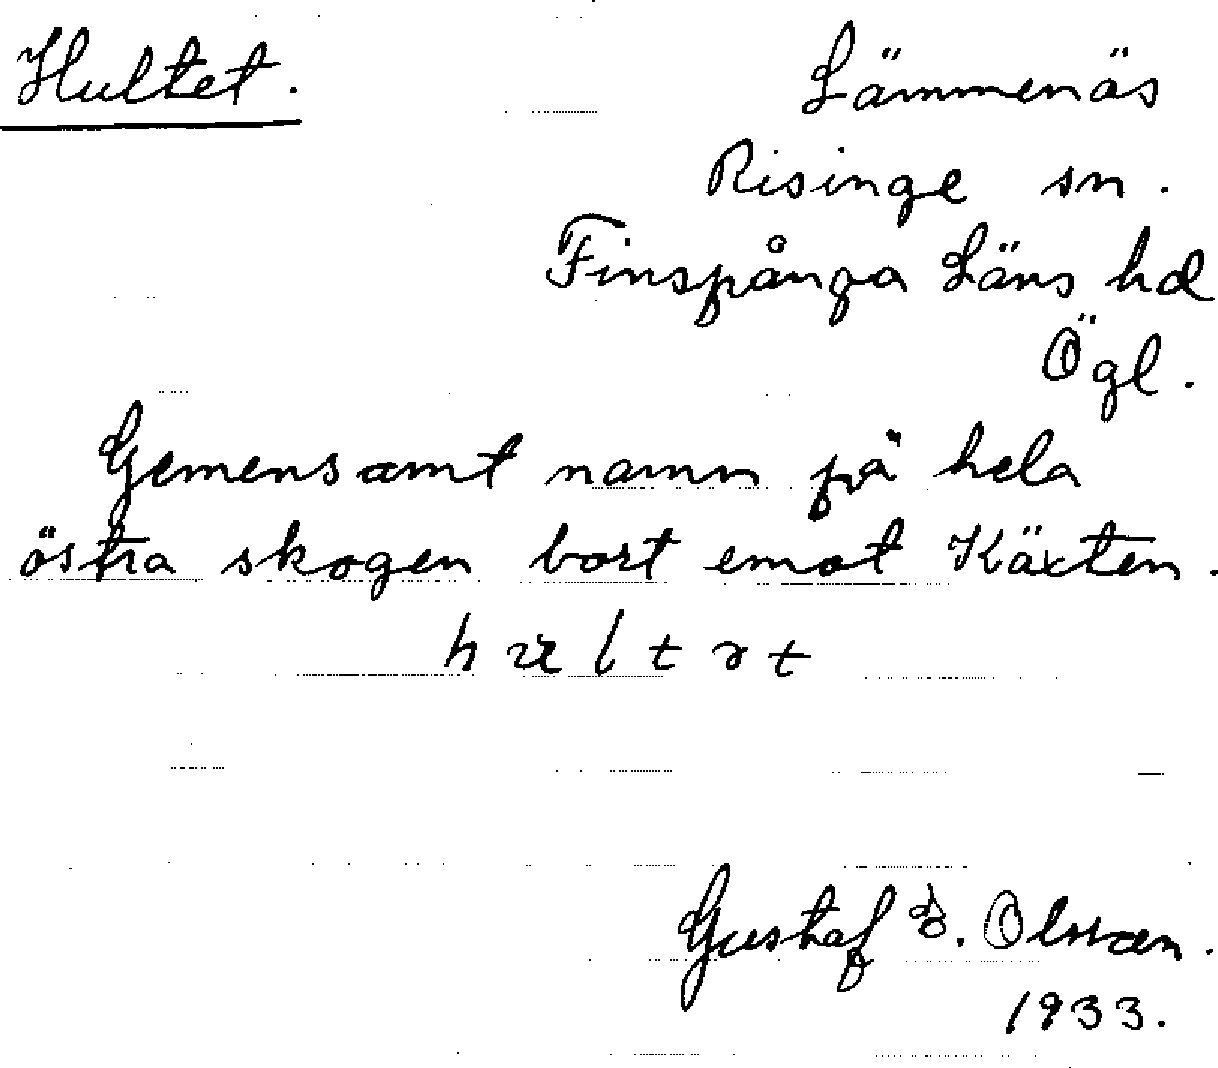 Hultet. Lämmenäs
Risinge sn.
Finspånga Läns hd
Ögl.
Gemensamt namn på hela
östra skogen bort emot Käxten.
Gustaf E. Olsson.
1933.